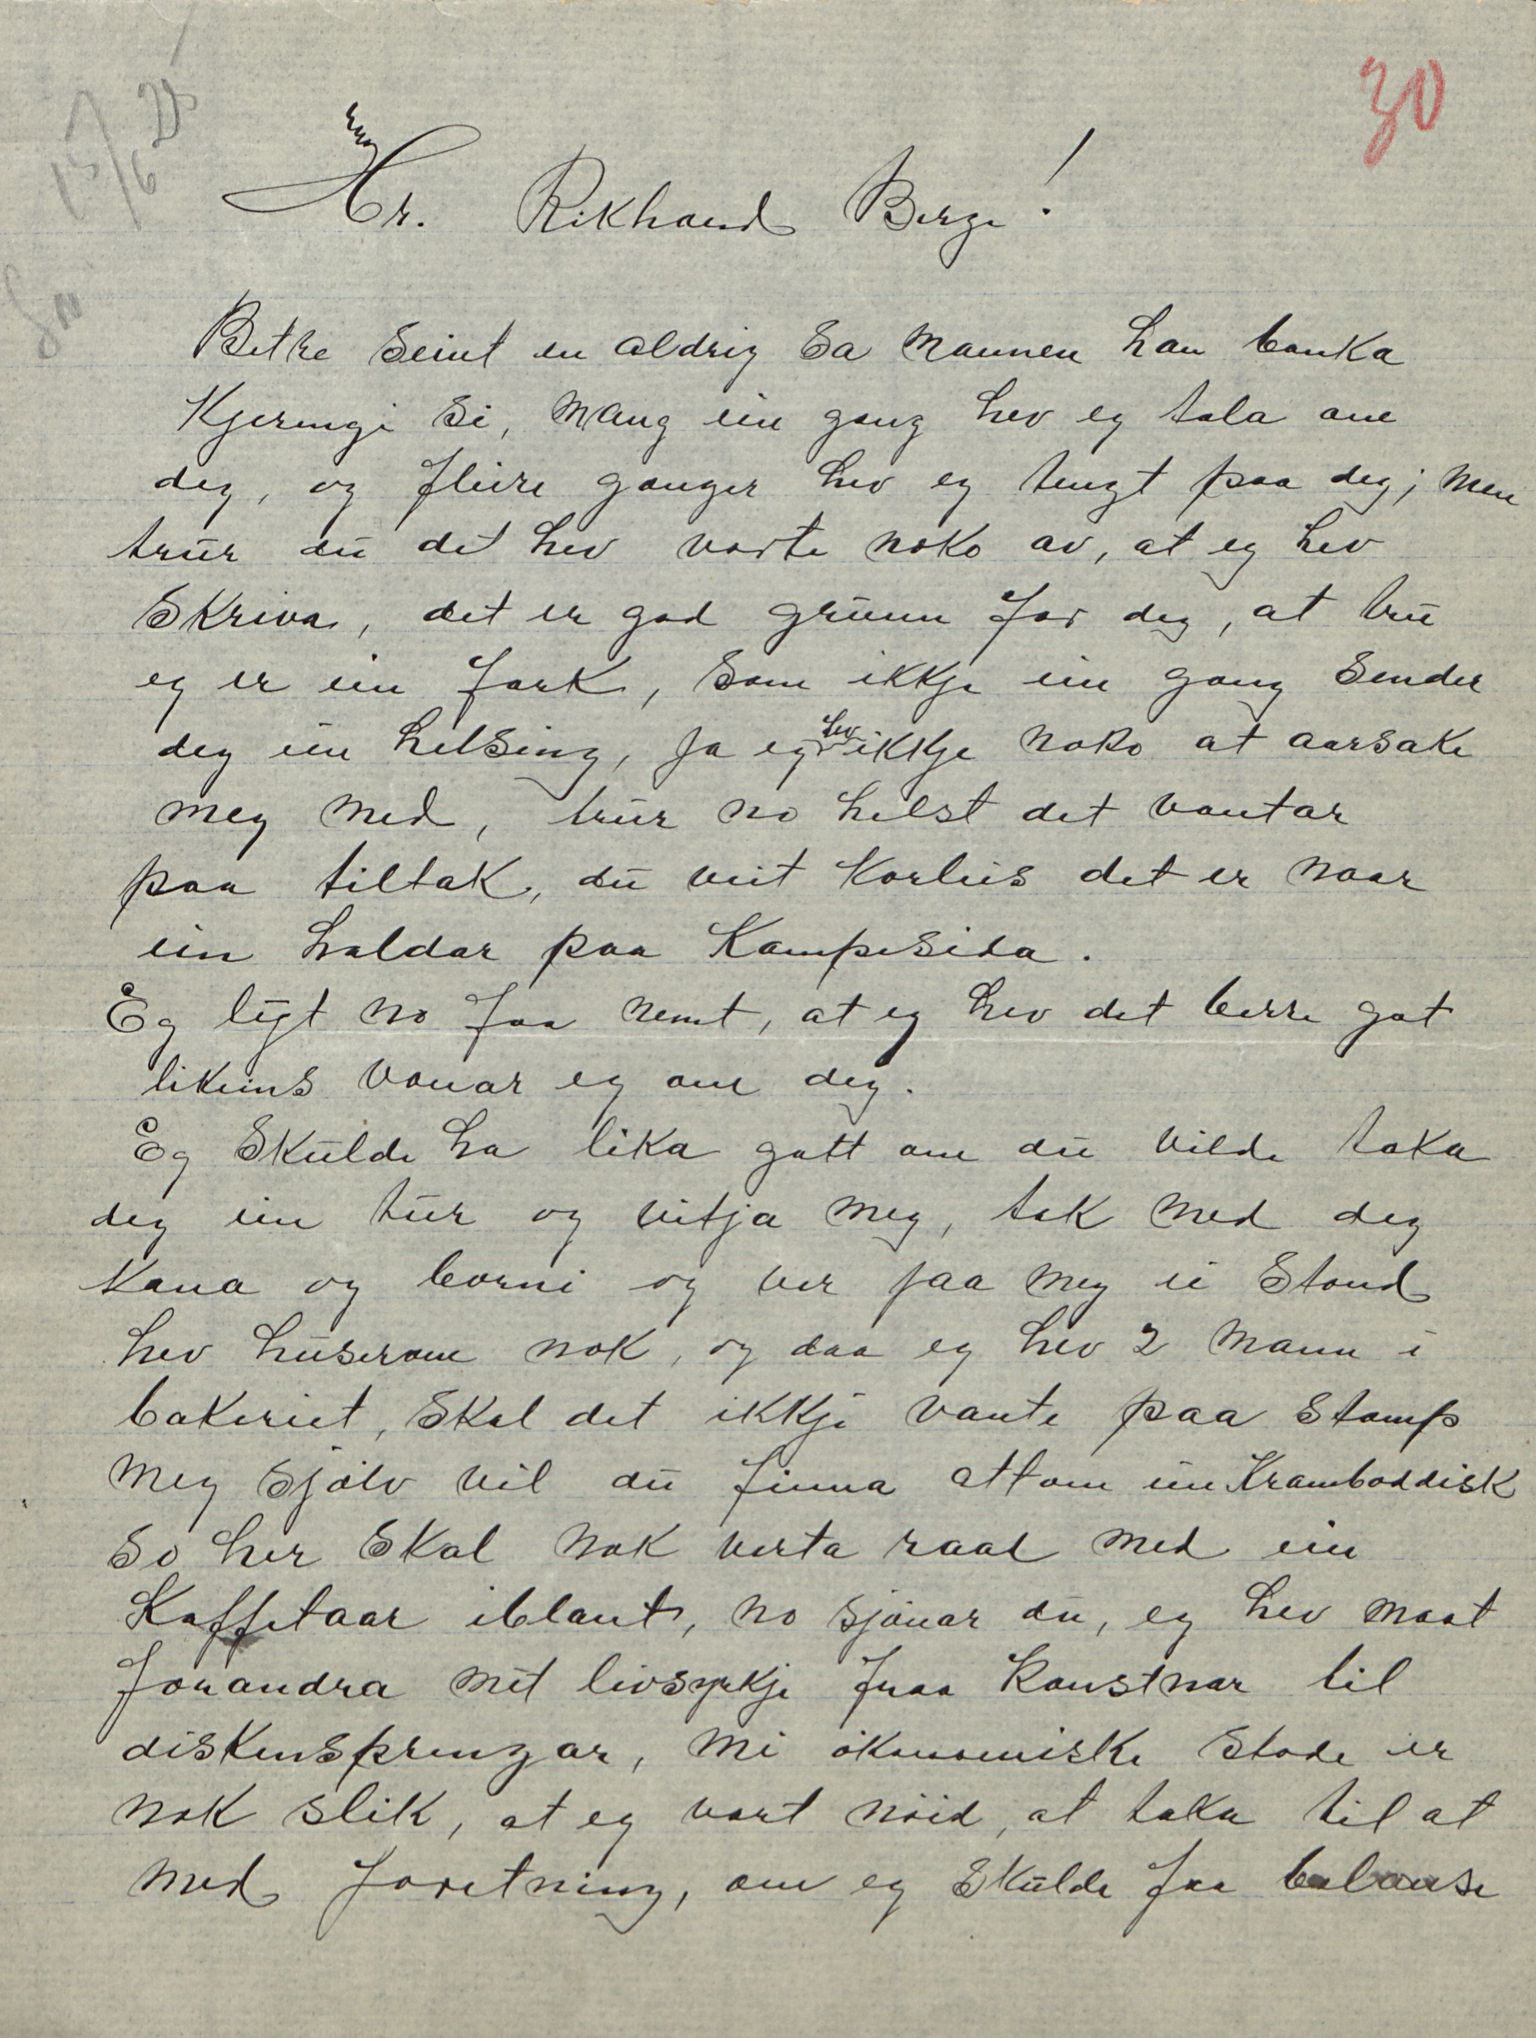 30
15/6 25
Hr. Rikhard Berge!
Betre seint en aldrig sa mannen han banka
Kjeringi si, mang ein gong hev eg tala om
deg, og fleire gonger hev eg tengt paa deg; men
trur du det hev vorte noko av, at eg hev
skriva, det er god grunn for deg, at tru
eg er ein fark, som ikkje ein gong sender
deg ein helsing, ja eg hev ikkje noko at aarsake
meg med, trur no helst det vantar
paa tiltak, du veit korleis det er naar
ein haldar paa Kampesida.
Eg lyt no faa nemt, at eg hev det berre got
likeins vonar eg om deg.
Eg skulde ha lika gott om du vilde taka
deg ein tur og vitja meg, tak med deg
Kana og borni og ver hjaa meg ei stond
hev huserom nok, og daa eg hev 2 mann i
bakeriet, skal det ikkje vante paa stomp
meg sjølv vil du finna attom ein Kramboddisk
so her skal nok verta raad med ein
Kaffetaar iblant, no sjønar du, eg hev maat
forandra mit livsyrkje fraa Konstnar til
diskenspringar, mi økonomiske stode er
nok slik, at eg vart nøid, at taka til at
med foretning, om eg skulde faa balanse